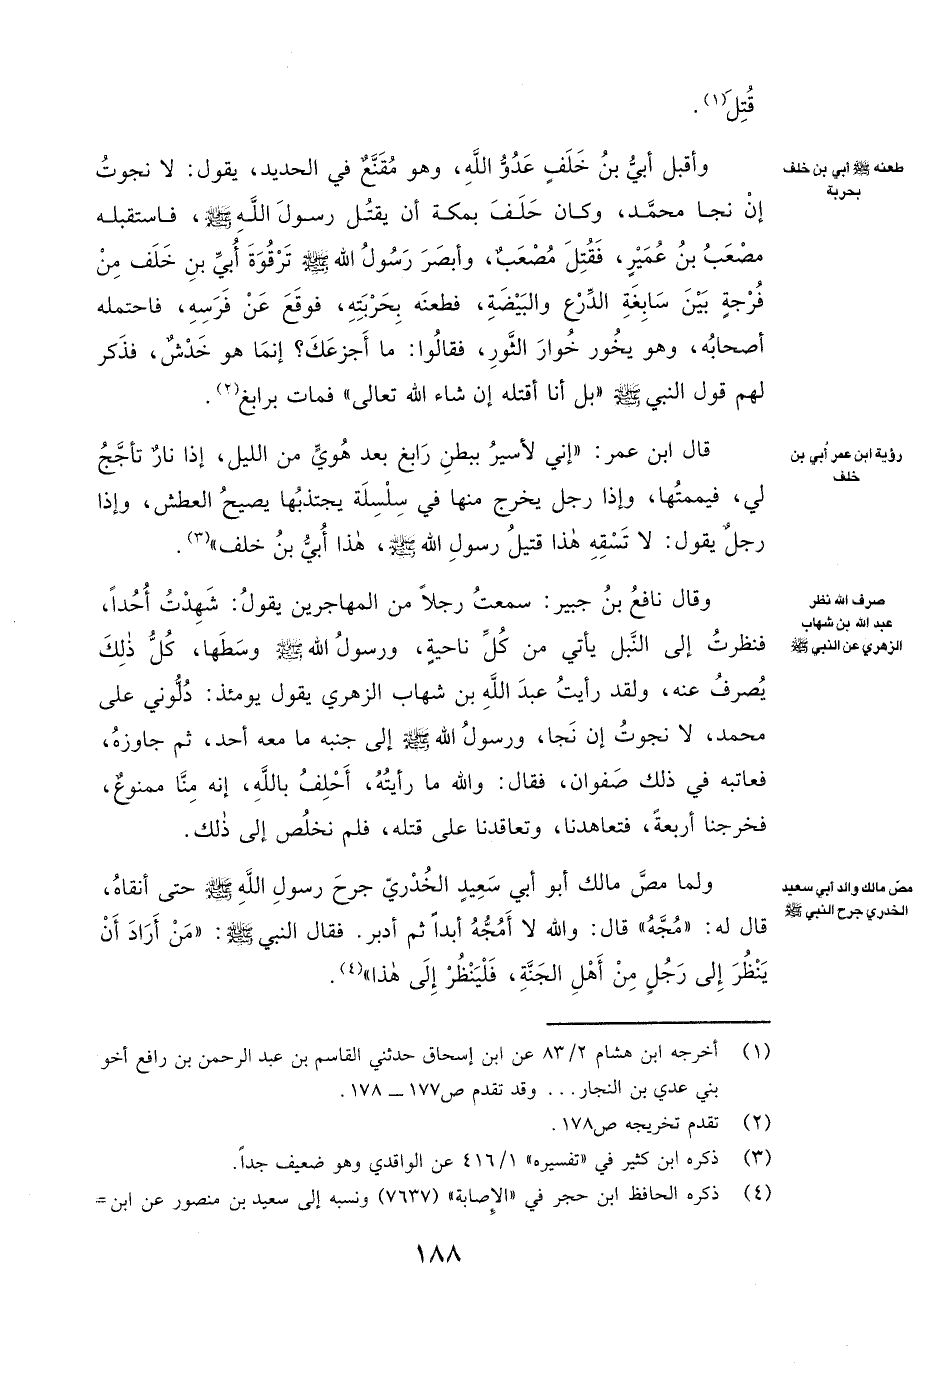 قُتِلَ(١) .
طعنه ﷺ أبي بن خلف بحربة
وأقبل أُبيُّ بنُ خَلَفٍ عَدُوُّ اللَّهِ، وهو مُقَنَّعٌ في الحديد، يقول: لا نجوتُ
إنْ نجا محمَّد، وكان حَلَفَ بمكة أن يقتُل رسولَ اللَّهِ ﷺ، فاستقبله
مصْعَبُ بنُ عُمَيْرٍ، فَقُتِلَ مُصْعَبٌ، وأبصَرَ رَسُولُ الله ﷺ تَرْقُوَةَ أُبيِّ بنِ خَلَف مِنْ
فُرْجةٍ بَيْنَ سَابِغَةِ الدِّرْعِ والبَيْضَةِ، فطعنَه بِحَرْبَتِهِ، فوقَعَ عَنْ فَرَسِهِ، فاحتمله
أصحابُه، وهو يخُور خُوارَ الثَّورِ، فقالُوا: ما أَجزعَكَ؟ إنمَا هو خَدْشٌ، فذَكر
لهم قول النبي ﷺ «بل أنا أقتله إن شاء الله تعالى» فمات برابغ(٢) .
رؤية ابن عمر أُبي بن خلف
قال ابن عمر: «إني لأسيرُ ببطنِ رَابغ بعد هُويٍّ من الليل، إذا نارٌ تأجَّجُ
لي، فيممتُها، وإذا رجل يخرج منها في سِلْسِلَة يجتذبُها يصيحُ العطش، وإذا
رجلٌ يقول: لا تَسْقِهِ هٰذا قتيلُ رسولِ الله ﷺ، هٰذا أُبيُّ بنُ خلف»(٣) .
صرف الله نظر
عبد الله بن شهاب
الزهري عن النبي ﷺ
وقال نافعُ بنُ جبير: سمعتُ رجلاً من المهاجرين يقولُ: شَهِدْتُ أُحُداً،
فنظرتُ إلى النَّبل يأتي من كُلِّ ناحيةٍ، ورسولُ الله ﷺ وسَطَها، كُلُّ ذٰلِكَ
يُصرفُ عنه، ولقد رأيتُ عبدَ اللَّهِ بن شهاب الزهري يقول يومئذ: دُلُّوني على
محمد، لا نجوتُ إن نَجا، ورسولُ الله ﷺ إلى جنبه ما معه أحد، ثم جاوزهُ،
فعاتبه في ذلك صَفوان، فقال: والله ما رأيتُهُ، أَحْلِفُ باللَّهِ، إنه مِنَّا ممنوعٌ،
فخرجنا أربعةً، فتعاهدنا، وتعاقدنا على قتله، فلم نخلُص إلى ذٰلك.
مصّ مالك والد أبي سعيد
الخدري جرح النبي ﷺ
ولما مصَّ مالك أبو أبي سَعِيدٍ الخُدْريّ جرحَ رسولِ اللَّهِ ﷺ حتى أنقاهُ،
قال له: «مُجَّهُ» قال: والله لا أَمُجُّهُ أبداً ثم أدبر. فقال النبي ﷺ: «مَنْ أَرَادَ أَنْ
يَنْظُرَ إِلى رَجُلٍ مِنْ أَهْلِ الجَنَّةِ، فَلْيَنْظُرْ إِلَى هٰذا»(٤) .
(١) أخرجه ابن هشام ٨٣/٢ عن ابن إسحاق حدثني القاسم بن عبد الرحمن بن رافع أخو
بني عدي بن النجار... وقد تقدم ص١٧٧ ــ ١٧٨ .
(٢) تقدم تخريجه ص١٧٨ .
(٣) ذكره ابن كثير في «تفسيره» ٤١٦/١ عن الواقدي وهو ضعيف جداً.
(٤) ذكره الحافظ ابن حجر في «الإِصابة» (٧٦٣٧) ونسبه إلى سعيد بن منصور عن ابن =
١٨٨